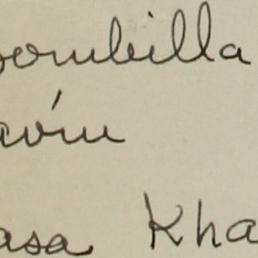 ombilla
avín
asa Kha